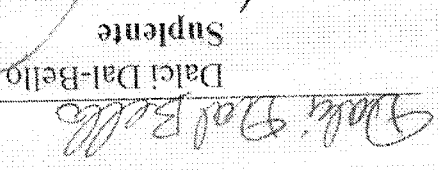 Dalci Dal Bello
Dalci Dal-Bello
Suplente